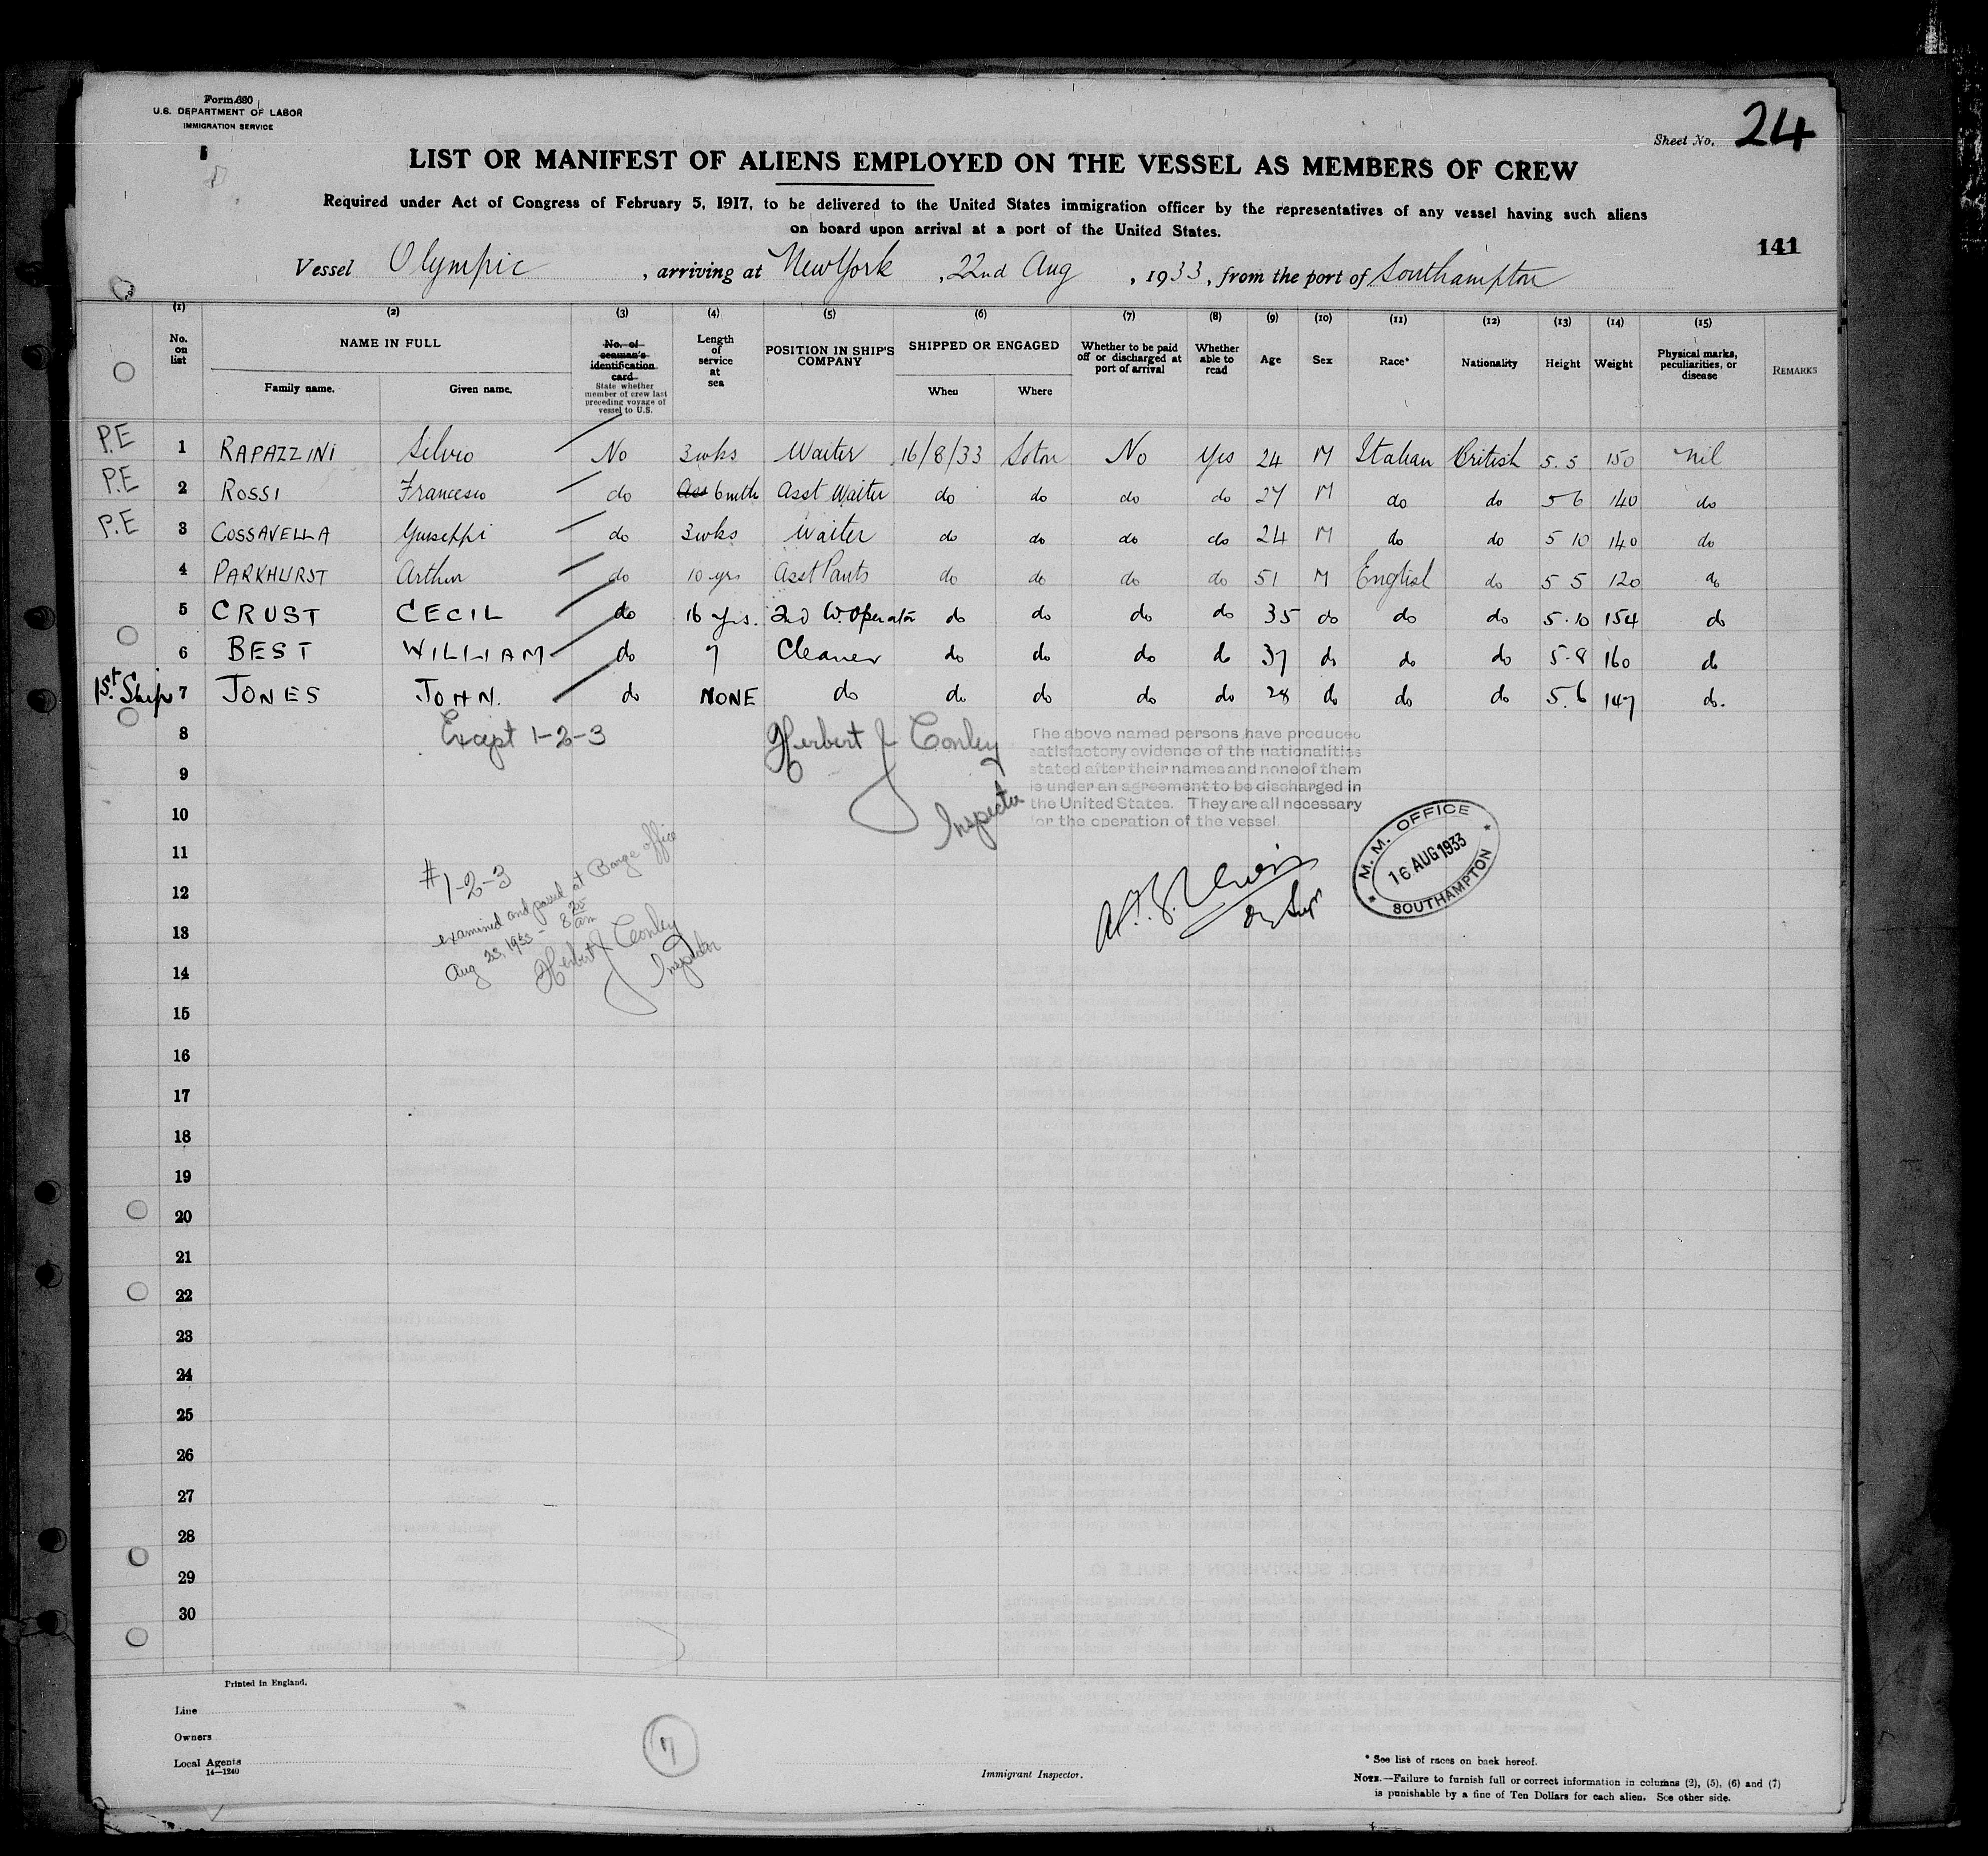 Form 680
U.S. DEPARTMENT OF LABOR
IMMIGRATION SERVICE
Sheet No. 24
LIST OR MANIFEST OF ALIENS EMPLOYED ON THE VESSEL AS MEMBERS OF CREW
Required under Act of Congress of February 5, 1917, to be delivered to the United States immigration officer by the representatives of any vessel having such aliens
on board upon arrival at a port of the United States.
141
Vessel Olympic, arriving at New York, 22nd Aug, 1933, from the port of Southampton
(1) (2) (3) (4) (5) (6) (7) (8) (9) (10) (11) (12) (13) (14) (15)
No. on list
NAME IN FULL
Family name. Given name.
No. of seaman's identification card
State whether member of crew last preceding voyage of vessel to U.S.
Length of service at sea
POSITION IN SHIP'S COMPANY
SHIPPED OR ENGAGED
When Where
Whether to be paid off or discharged at port of arrival
Whether able to read
Age
Sex
Race*
Nationality
Height
Weight
Physical marks, peculiarities, or disease
REMARKS
P.E 1 RAPAZZINI Silvio No 3wks Waiter 16/8/33 Soton No Yes 24 M Italian British 5.5 150 nil
P.E 2 ROSSI Francesco do 6mth Asst Waiter do do do do 27 M do do 5 6 140 do
P.E 3 COSSAVELLA Guiseppi do 3wks Waiter do do do do 24 M do do 5 10 140 do
4 PARKHURST Arthur do 10 yrs Asst Pants do do do do 51 M English do 5 5 120 do
5 CRUST CECIL do 16 yrs. 2nd W. Operator do do do do 35 do do do 5.10 154 do
6 BEST WILLIAM do 7 Cleaner do do do do 37 do do do 5.8 160 do
1st Ship 7 JONES JOHN. do NONE do do do do do 28 do do do 5.6 147 do.
8
Except 1-2-3
Herbert J Conley
Inspector
The above named persons have produced
satisfactory evidence of the nationalities
stated after their names and none of them
is under an agreement to be discharged in
the United States. They are all necessary
for the operation of the vessel.
9
10
11
12
13
14
15
16
17
18
19
20
21
22
23
24
25
26
27
28
29
30
M. M. OFFICE
16 AUG 1933
SOUTHAMPTON
#1-2-3
examined and passed at Barge office
Aug 23, 1933 - 8 20 am
Herbert J Conley
Inspector
Printed in England.
Line
Owners
Local Agents
14—1240
7
Immigrant Inspector.
* See list of races on back hereof.
NOTE.—Failure to furnish full or correct information in columns (2), (5), (6) and (7)
is punishable by a fine of Ten Dollars for each alien. See other side.